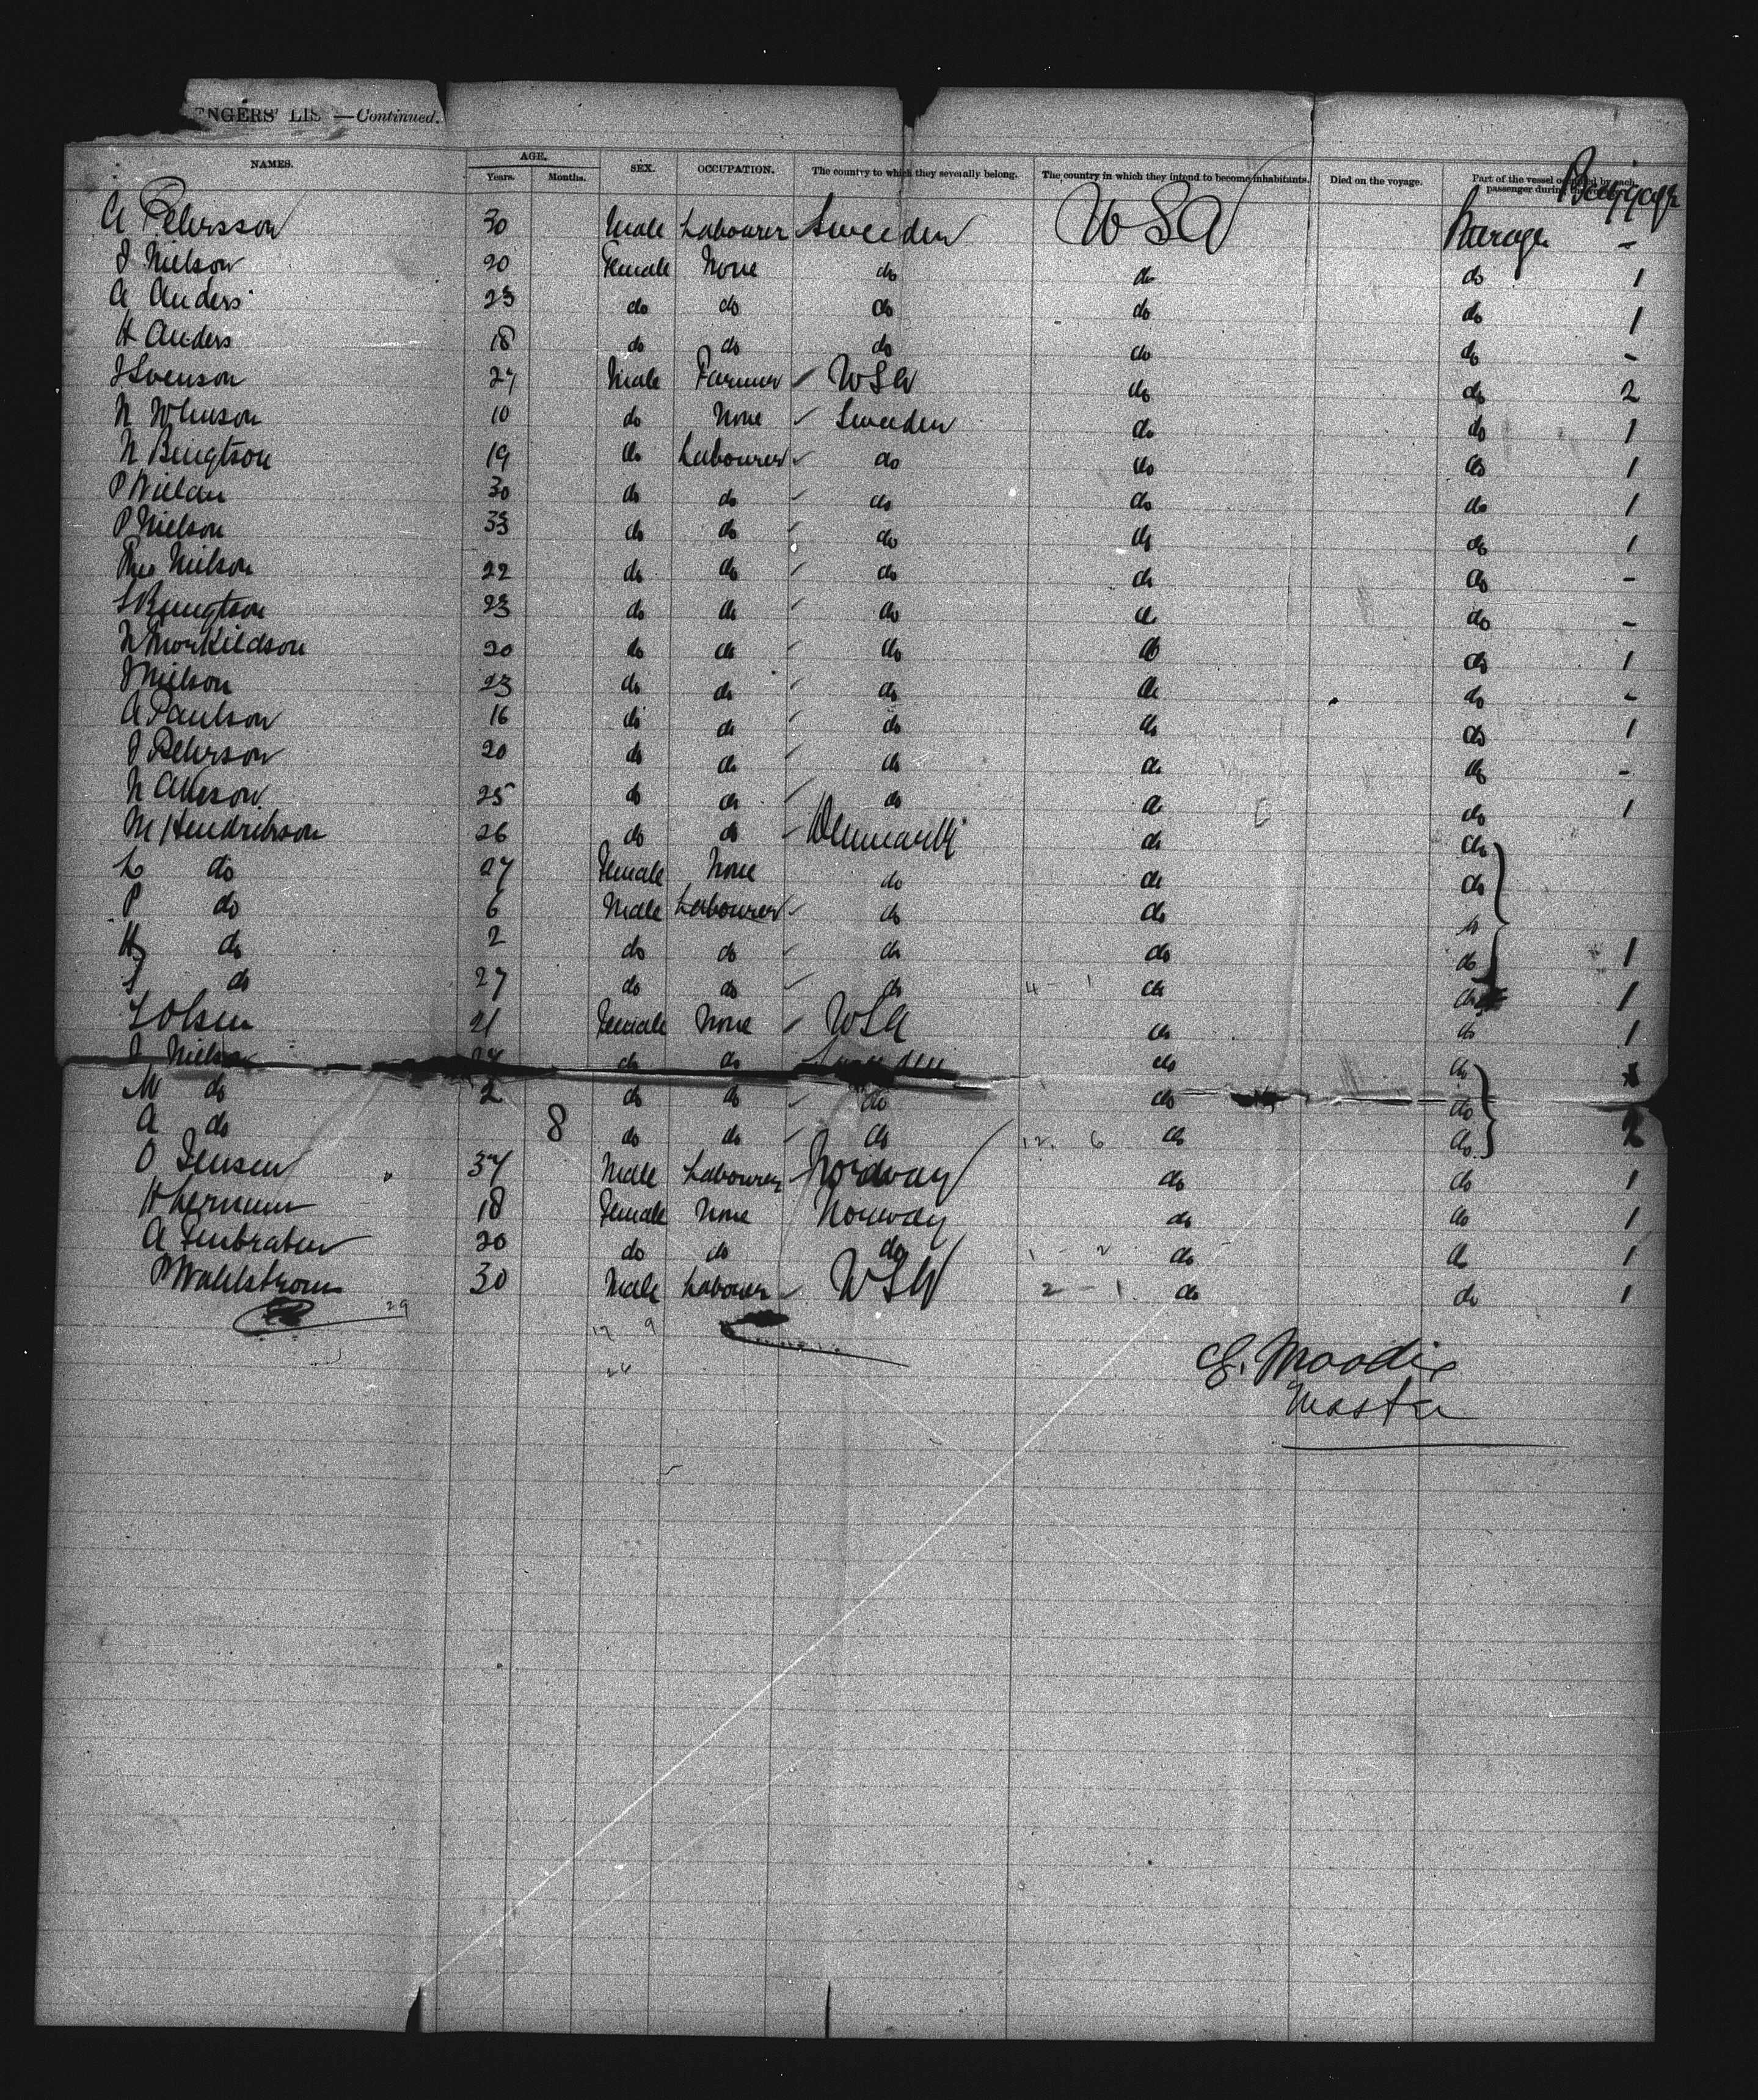 ENGERS' LIS —Continued.
NAMES. AGE. Years. Months. SEX. OCCUPATION. The country to which they severally belong. The country in which they intend to become inhabitants. Died on the voyage. Part of the vessel occupied by each passenger during Baggage
A Petersson 30 Male Labourer Sweeden USA Steerage -
J Nielson 20 Female None do do do 1
A Anders 23 do do do do do 1
H Anders 18 do do do do do -
J Svenson 27 Male Farmer USA do do 2
N 10 do None Sweeden do do 1
N Bengtson 19 do Labourer do do do 1
P 30 do do do do do 1
P Nielson 33 do do do do do 1
Nielson 22 do do do do do -
S Bengtson 23 do do do do do -
N Thorkildson 20 do do do do do 1
J Nielson 23 do do do do do -
A Paulson 16 do do do do do 1
J Peterson 20 do do do do do -
N 25 do do do do do 1
M Hendrikson 26 do do Denmark do do
L do 27 Female None do do do
P do 6 Male Labourer do do do
H do 2 do do do do do 1
J do 27 do do do 4 - 1 do do 1
L Olsen 21 Female None USA do do 1
Nielson 24 do do do do
M do 2 do do do do do
A do 8 do do do 12. 6 do do 2
O Jensen 37 Male Labourer Norway do do 1
H 18 Female None Norway do do 1
A 20 do do do 1 - 2 do do 1
P Wahlstrom 30 Male Labourer USA 2 - 1 do do 1
29
17 9
C. Moodie
Master